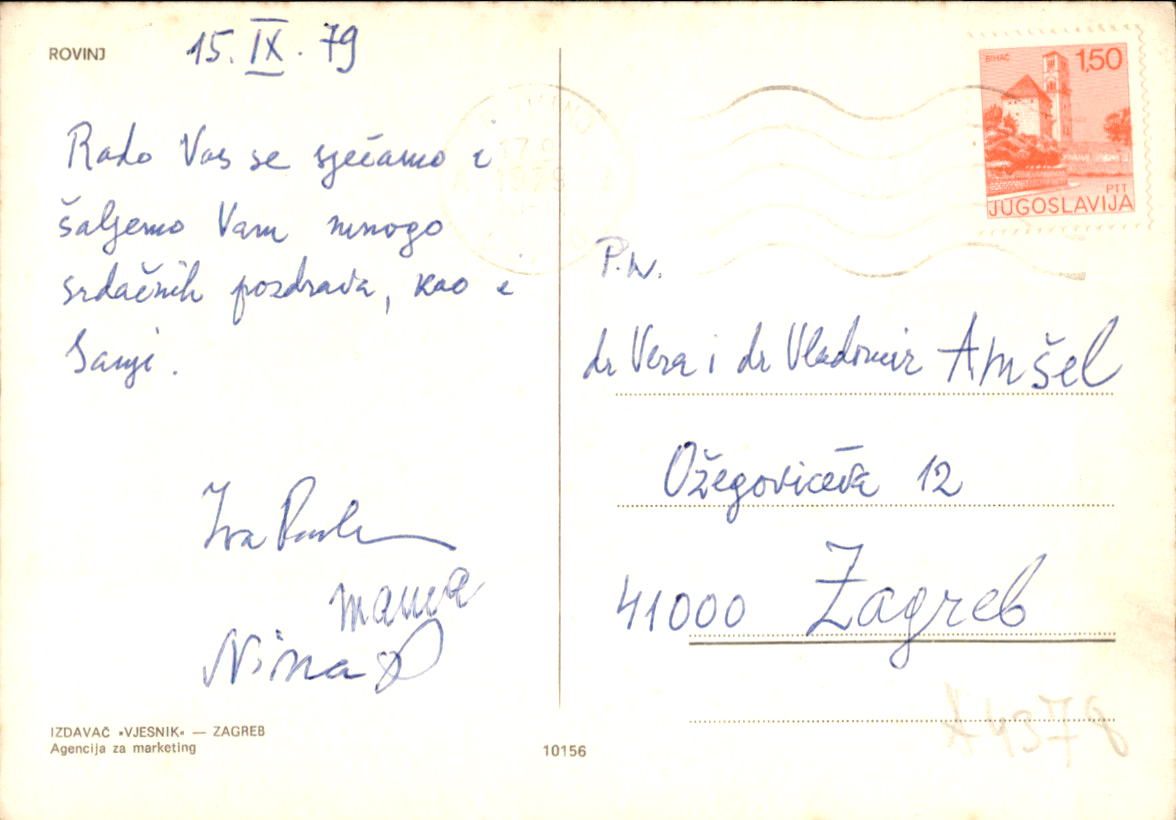 ROVINJ
15. IX. 79
Rado Vas se sjećamo i
šaljemo Vam mnogo
srdačnih pozdrava, kao i
Sanji.
Iva
mama
Nina
IZDAVAČ »VJESNIK« — ZAGREB
Agencija za marketing
10156
BIHAĆ
1,50
PTT
JUGOSLAVIJA
P.n.
dr Vera i dr Vladimir Amšel
Ožegovićeva 12
41000 Zagreb
A4378